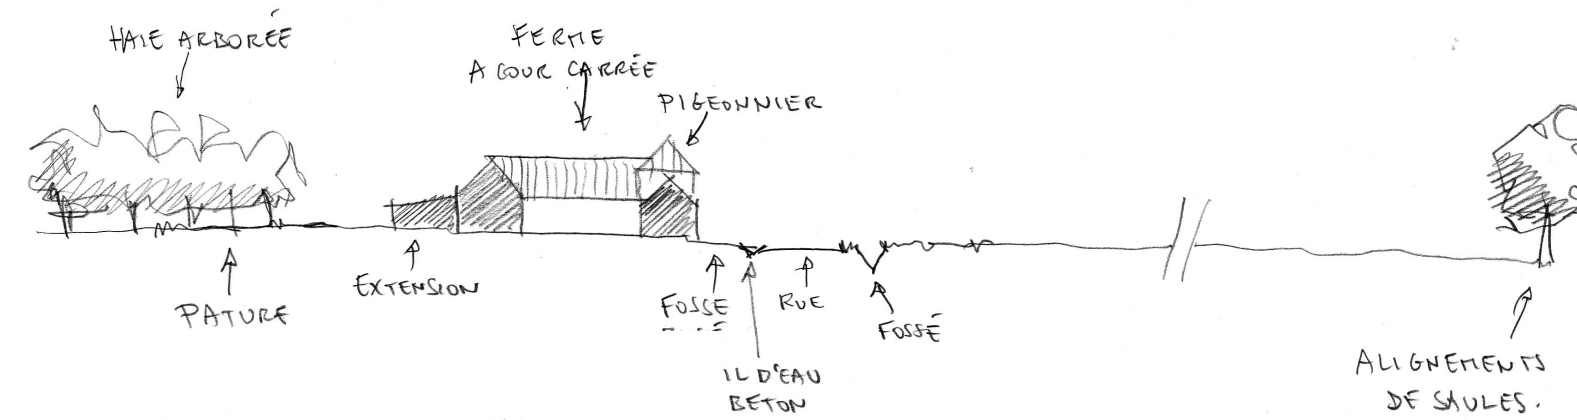 HAIE ARBORÉE
FERME
A COUR CARRÉE
PIGEONNIER
EXTENSION
PATURE
FOSSE
RUE
FOSSÉ
IL D'EAU
BETON
ALIGNEMENTS
DE SAULES.